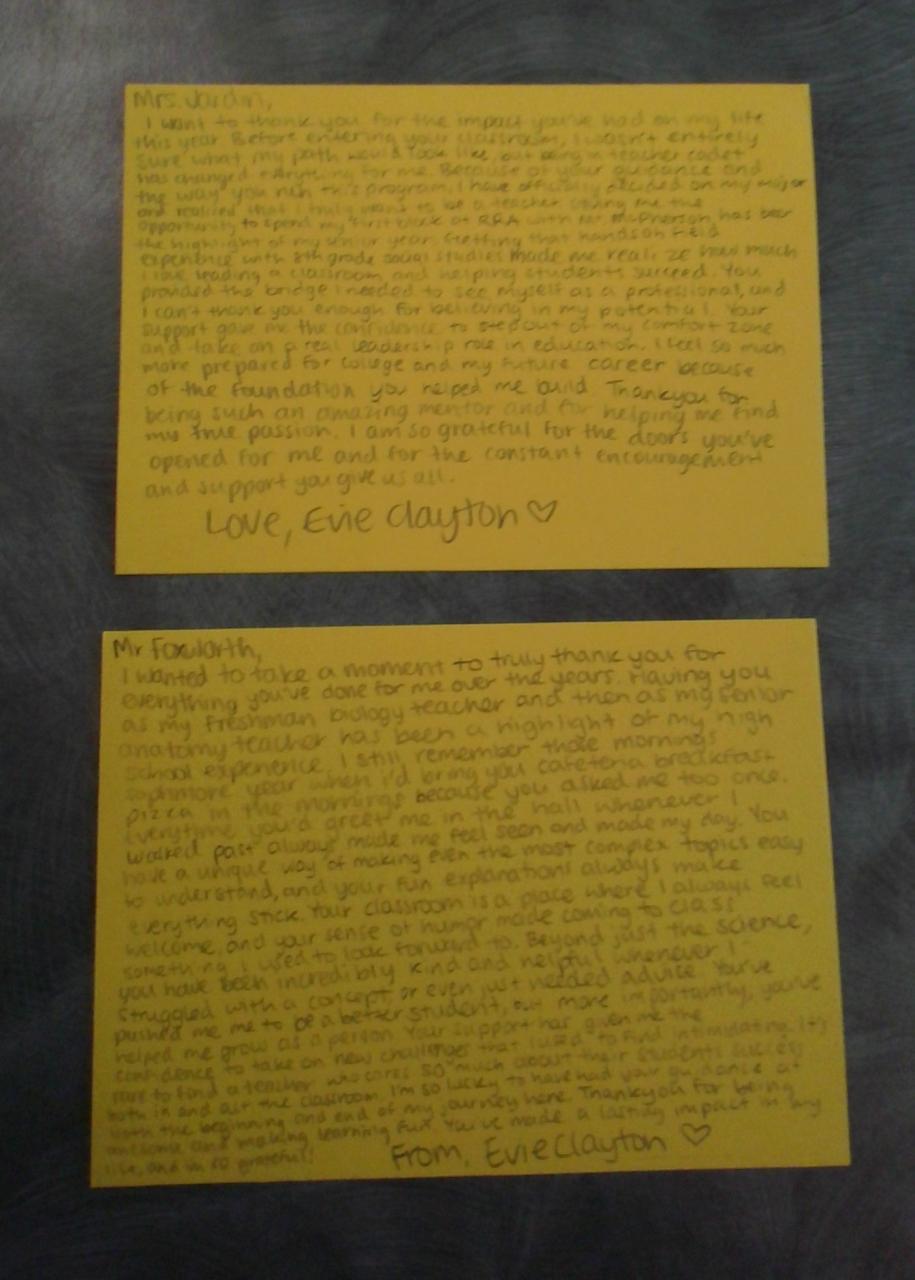 Mrs. Jardin,
I want to thank you for the impact you've had on my life
this year. Before entering your classroom, I wasn't entirely
sure what my path would look like, but being in teacher cadet
has changed everything for me. Because of your guidance and
the way you run this program, I have officially decided on my major
and realized that I truly want to be a teacher. Giving me the
opportunity to spend my first block at RRA with Mr. McPherson has been
the highlight of my senior year. Getting that hands on field
experience with 8th grade social studies made me realize how much
I love leading a classroom and helping students succeed. You
provided the bridge I needed to see myself as a professional, and
I can't thank you enough for believing in my potential. Your
support gave me the confidence to step out of my comfort zone
and take on a real leadership role in education. I feel so much
more prepared for college and my future career because
of the foundation you helped me build. Thankyou for
being such an amazing mentor and for helping me find
my true passion. I am so grateful for the doors you've
opened for me and for the constant encouragement
and support you give us all.
Love, Evie Clayton ♡
Mr Foxworth,
I wanted to take a moment to truly thank you for
everything you've done for me over the years. Having you
as my freshman biology teacher and then as my senior
anatomy teacher has been a highlight of my high
school experience. I still remember those mornings
sophmore year when i'd bring you cafeteria breakfast
pizza in the mornings because you asked me too once.
Everytime you'd greet me in the hall whenever I
walked past always made me feel seen and made my day. You
have a unique way of making even the most complex topics easy
to understand, and your fun explanations always make
everything stick. Your classroom is a place where I always feel
welcome, and your sense of humor made coming to class
something I used to look forward to. Beyond just the science,
you have been incredibly kind and helpful whenever I
struggled with a concept, or even just needed advice. You've
pushed me me to be a better student, but more importantly, you've
helped me grow as a person. Your support has given me the
confidence to take on new challenges that I used to find intimidating. It's
rare to find a teacher who cares so much about their students success
both in and out the classroom. I'm so lucky to have had your guidance at
both the beginning and end of my journey here. Thankyou for being
awesome and making learning fun. You've made a lasting impact in my
life, and im so grateful!
From, Evie Clayton ♡